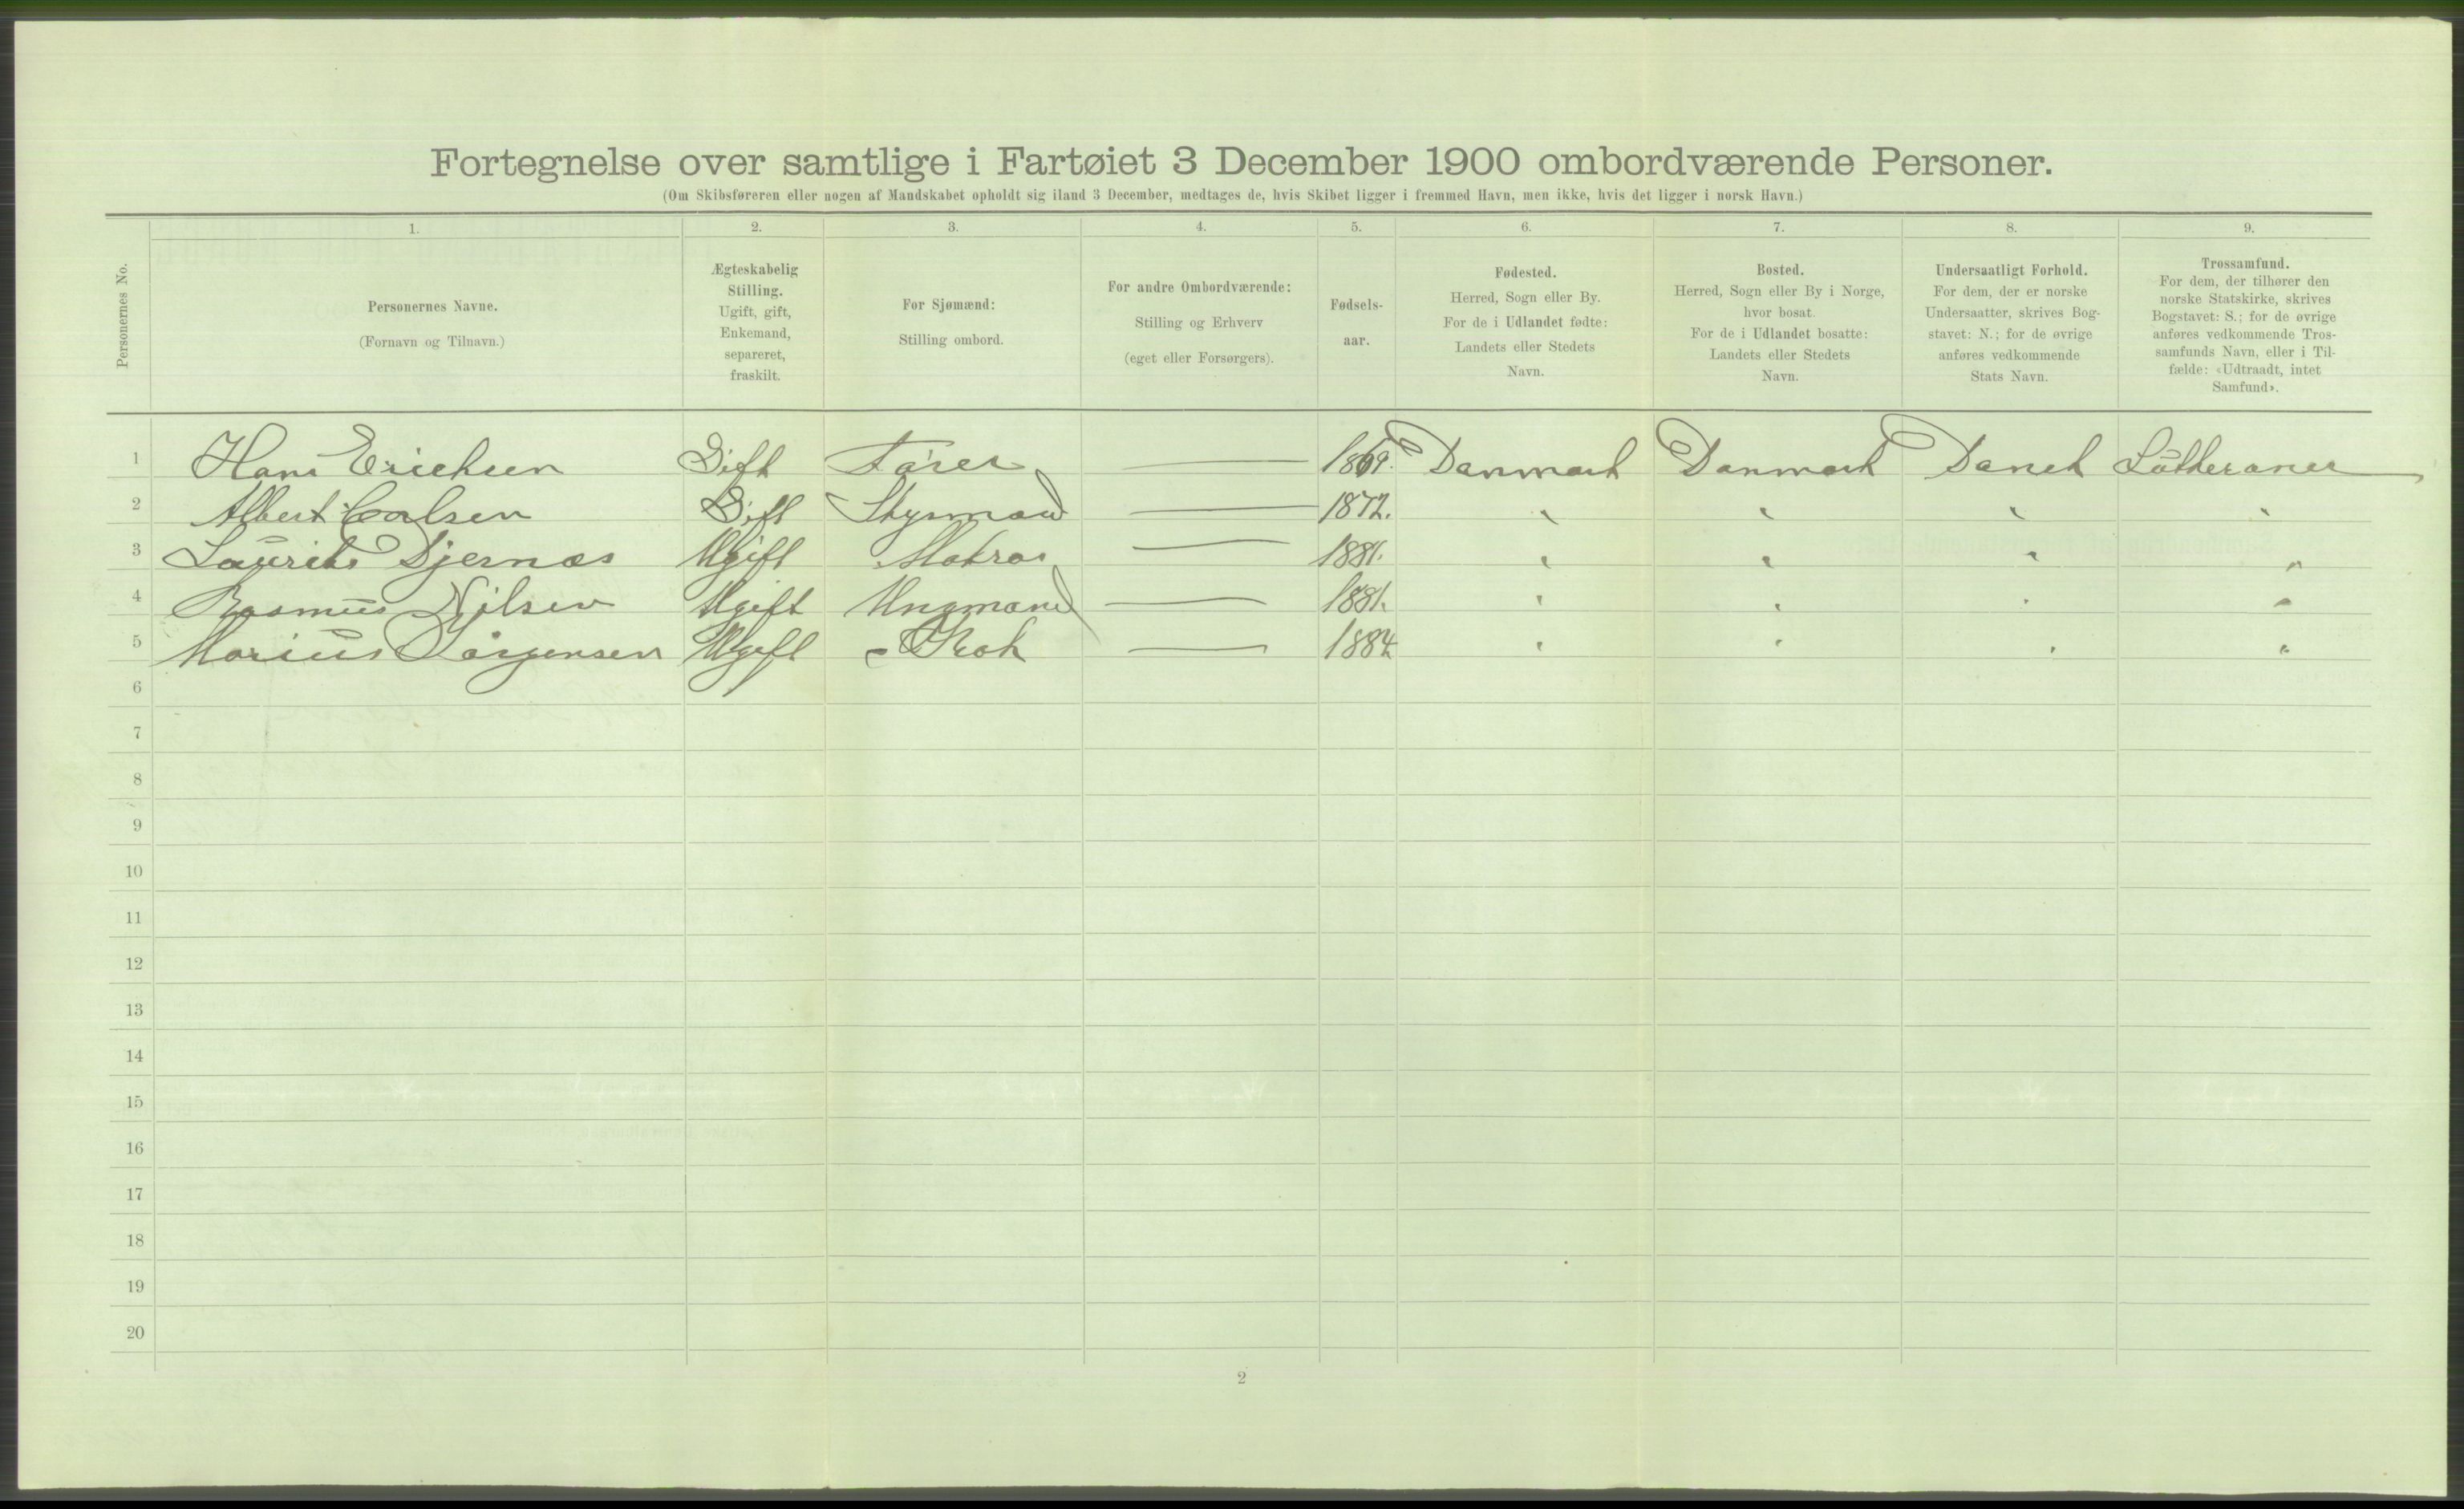 Fortegnelse over samtlige i Fartøiet 3 December 1900 ombordværende Personer.
(Om Skibsføreren eller nogen af Mandskabet opholdt sig iland 3 December, medtages de, hvis Skibet ligger i fremmed Havn, men ikke, hvis det ligger i norsk Havn.)
Personernes No.
1.
Personernes Navne.
(Fornavn og Tilnavn.)
2.
Ægteskabelig
Stilling.
Ugift, gift,
Enkemand,
separeret,
fraskilt.
3.
For Sjømænd:
Stilling ombord.
4.
For andre Ombordværende:
Stilling og Erhverv
(eget eller Forsørgers).
5.
Fødsels-
aar.
6.
Fødested.
Herred, Sogn eller By.
For de i Udlandet fødte:
Landets eller Stedets
Navn.
7.
Bosted.
Herred, Sogn eller By i Norge,
hvor bosat.
For de i Udlandet bosatte:
Landets eller Stedets
Navn.
8.
Undersaatligt Forhold.
For dem, der er norske
Undersaatter, skrives Bog-
stavet: N.; for de øvrige
anføres vedkommende
Stats Navn.
9.
Trossamfund.
For dem, der tilhører den
norske Statskirke, skrives
Bogstavet: S.; for de øvrige
anføres vedkommende Tros-
samfunds Navn, eller i Til-
fælde: «Udtraadt, intet
Samfund».
1 Hans Erichsen Gift Fører — 1869. Danmark Danmark Dansk Lutheraner
2 Albert Carlsen Gift Stysmand — 1872. " " " "
3 Laurits Djernæs Ugift Matros — 1881. " " " "
4 Rasmus Nilsen Ugift Ungmand — 1881. " " " "
5 Marius Jørgensen Ugift Kok — 1884 " " " "
6
7
8
9
10
11
12
13
14
15
16
17
18
19
20
2